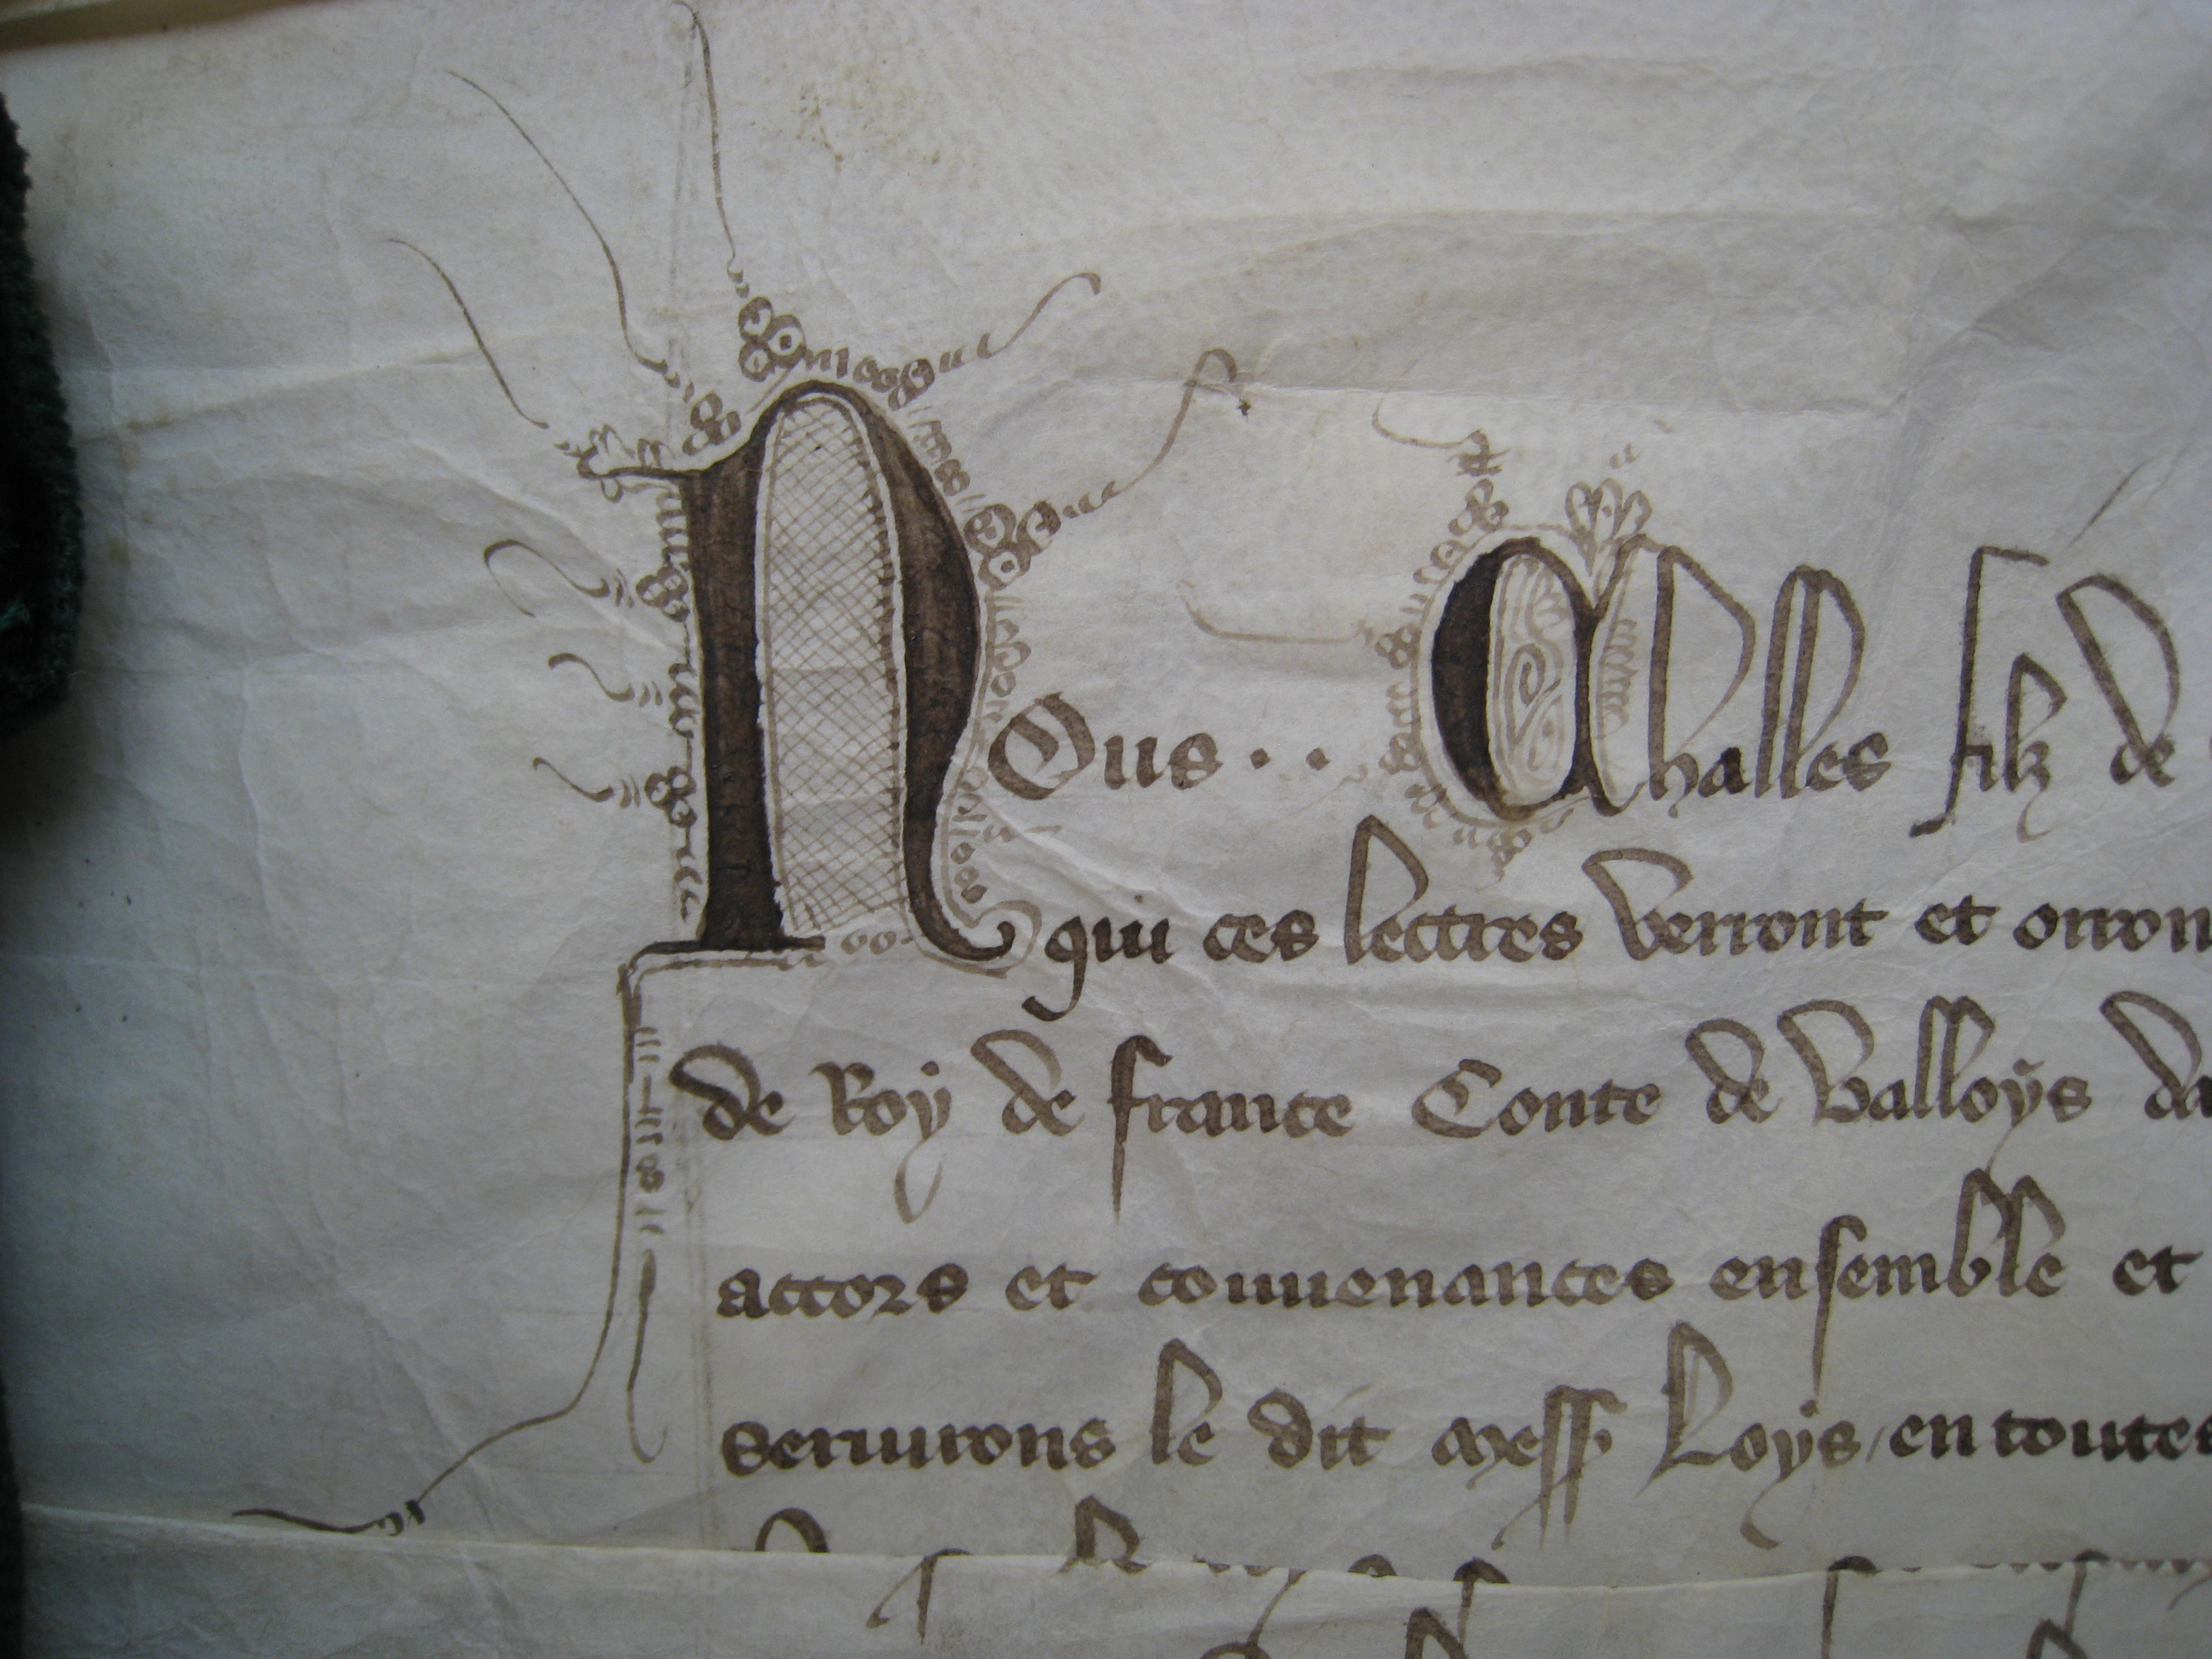 NOus · · Challes filz de
qui ces lettres verront et orron
de Roy de france Conte de Valloys da
actors et conuenances ensemble et
seruirons le dit mess Loys / en toutes